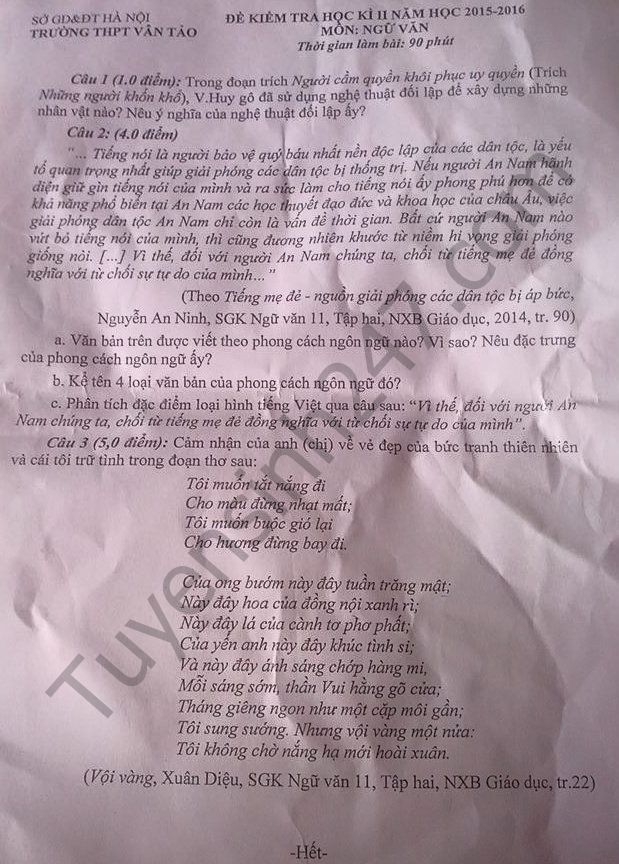 SỞ GD&ĐT HÀ NỘI
TRƯỜNG THPT VÂN TẢO
ĐỀ KIỂM TRA HỌC KÌ II NĂM HỌC 2015-2016
MÔN: NGỮ VĂN
Thời gian làm bài: 90 phút
Câu 1 (1.0 điểm): Trong đoạn trích Người cầm quyền khôi phục uy quyền (Trích
Những người khốn khổ), V.Huy gô đã sử dụng nghệ thuật đối lập để xây dựng những
nhân vật nào? Nêu ý nghĩa của nghệ thuật đối lập ấy?
Câu 2: (4.0 điểm)
"... Tiếng nói là người bảo vệ quý báu nhất nền độc lập của các dân tộc, là yếu
tố quan trọng nhất giúp giải phóng các dân tộc bị thống trị. Nếu người An Nam hãnh
diện giữ gìn tiếng nói của mình và ra sức làm cho tiếng nói ấy phong phú hơn để có
khả năng phổ biến tại An Nam các học thuyết đạo đức và khoa học của châu Âu, việc
giải phóng dân tộc An Nam chỉ còn là vấn đề thời gian. Bất cứ người An Nam nào
vứt bỏ tiếng nói của mình, thì cũng đương nhiên khước từ niềm hi vọng giải phóng
giống nòi. [...] Vì thế, đối với người An Nam chúng ta, chối từ tiếng mẹ đẻ đồng
nghĩa với từ chối sự tự do của mình..."
(Theo Tiếng mẹ đẻ - nguồn giải phóng các dân tộc bị áp bức,
Nguyễn An Ninh, SGK Ngữ văn 11, Tập hai, NXB Giáo dục, 2014, tr. 90)
a. Văn bản trên được viết theo phong cách ngôn ngữ nào? Vì sao? Nêu đặc trưng
của phong cách ngôn ngữ ấy?
b. Kể tên 4 loại văn bản của phong cách ngôn ngữ đó?
c. Phân tích đặc điểm loại hình tiếng Việt qua câu sau: "Vì thế, đối với người An
Nam chúng ta, chối từ tiếng mẹ đẻ đồng nghĩa với từ chối sự tự do của mình".
Câu 3 (5,0 điểm): Cảm nhận của anh (chị) về vẻ đẹp của bức tranh thiên nhiên
và cái tôi trữ tình trong đoạn thơ sau:
Tôi muốn tắt nắng đi
Cho màu đừng nhạt mất;
Tôi muốn buộc gió lại
Cho hương đừng bay đi.
Của ong bướm này đây tuần trăng mật;
Này đây hoa của đồng nội xanh rì;
Này đây lá của cành tơ phơ phất;
Của yến anh này đây khúc tình si;
Và này đây ánh sáng chớp hàng mi,
Mỗi sáng sớm, thần Vui hằng gõ cửa;
Tháng giêng ngon như một cặp môi gần;
Tôi sung sướng. Nhưng vội vàng một nửa:
Tôi không chờ nắng hạ mới hoài xuân.
(Vội vàng, Xuân Diệu, SGK Ngữ văn 11, Tập hai, NXB Giáo dục, tr.22)
-Hết-
Tuyensinh247.com